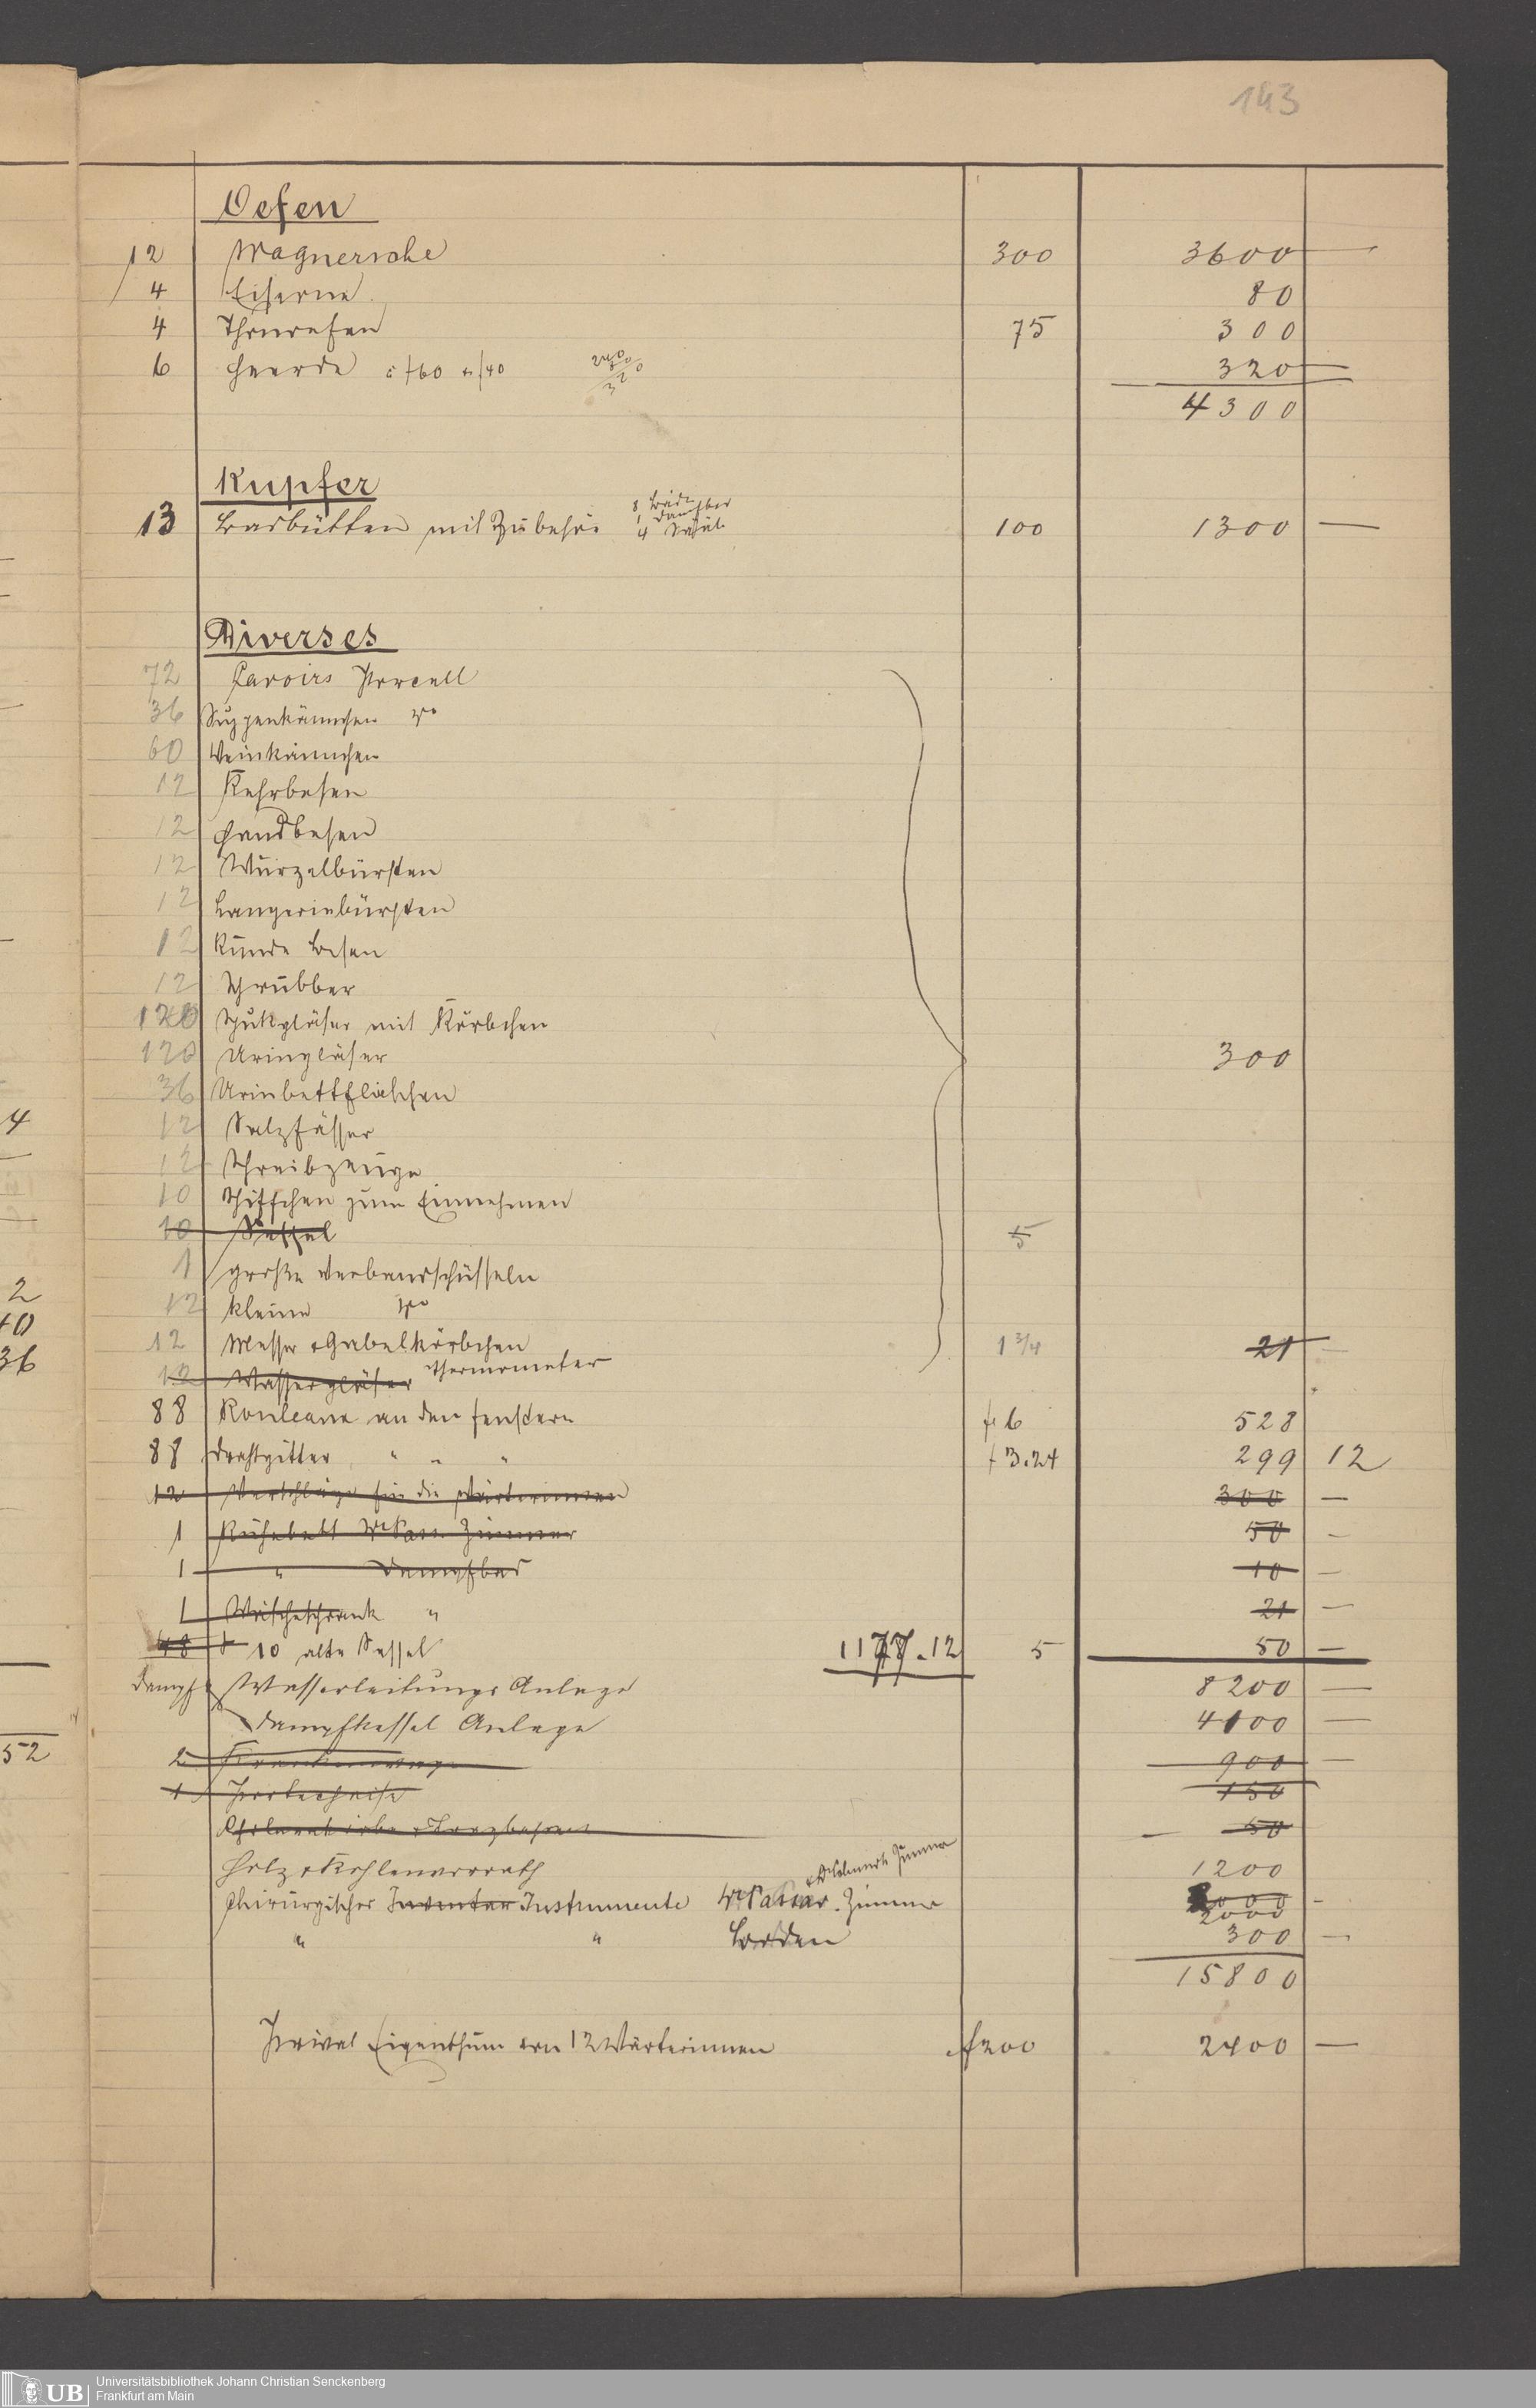 143
Oefen
12 Wagnersche 300 3600 —
4 Eiserne 80
4 Thonoefen 75 300
6 Heerde 60 40 320 —
4300
Kupfer
8 Bäder
1 Dampfbad
13 Badbütten mit Zubehör 4 100 1300 —
Diverses
72 Lavoirs Porcell
36 Suppenkännchen do
60 Weinkännchen
12 Kehrbesen
12 Handbesen
12 Wurzelbürsten
12 Langerinbürsten
12 Runde Besen
12 Schrubber
120 Spukgläser mit Körbchen
120 Uringläser 300
36 Urinbettflaschen
12 Salzfässer
12 Schreibzeuge
10 Schiffchen zum Einnehmen
10 Sessel 5
1 große Verbandschüsseln
12 kleine do
12 Messer & Gabelkörbchen 1 3/4 21 —
12 Wassergläser Thermometer
88 Rouleaux an den Fenstern f 6 528
88 Drahtgitter " " " f 3.24 299 12
12 Verschläge für die Wärterinnen 300 —
1 Ruhebett Zimmer 50 —
1 " Dampfbad 10 —
1 Wäscheschrank " 21 —
48 10 alte Sessel 1177.12 5 50 —
Dampf & Wasserleitungs Anlage 8200 —
Dampfkessel Anlage 4100 —
2 900 —
1 150
50
Holz & Kohlenvorrath 1200
Zimmer
Chirurgischer Inventar Instrumente Zimmer 2000 —
" " Boden 300 —
15800
Privat Eigenthum von 12 Wärterinnen f 200 2400 —
4
2
40
36
52
UB
Universitätsbibliothek Johann Christian Senckenberg
Frankfurt am Main